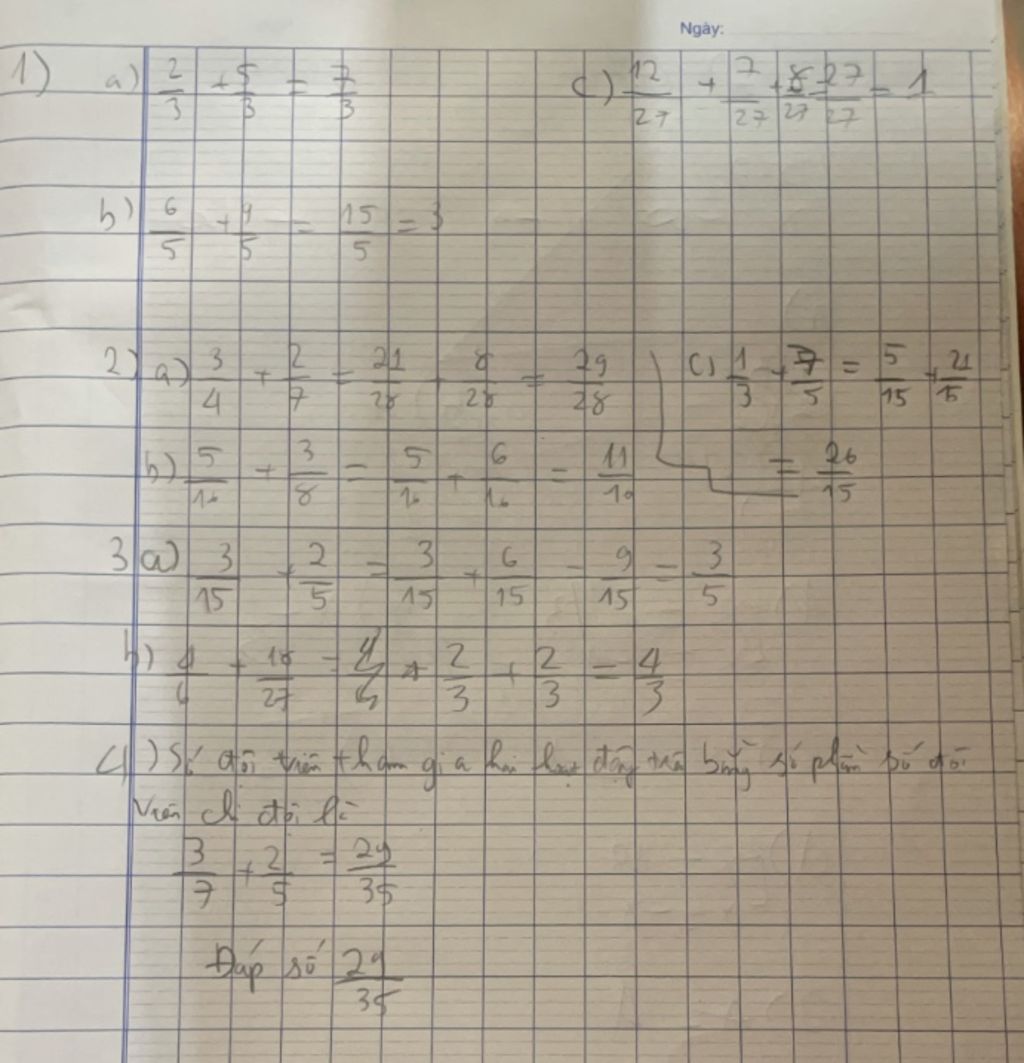 Ngày:
1) a) 2/3 + 5/3 = 7/3 c) 12/27 + 7/27 + 8/27 = 27/27 = 1
b) 6/5 + 9/5 = 15/5 = 3
2) a) 3/4 + 2/7 = 21/28 + 8/28 = 29/28 c) 1/3 + 7/5 = 5/15 + 21/15
b) 5/16 + 3/8 = 5/16 + 6/16 = 11/16 = 26/15
3 a) 3/15 + 2/5 = 3/15 + 6/15 = 9/15 = 3/5
b) 4/6 + 18/27 = 2/3 + 2/3 = 4/3
4) Số đội viên tham gia hai hoạt động trên bằng số phần số đội
viên chi đội là
3/7 + 2/5 = 29/35
Đáp số 29/35